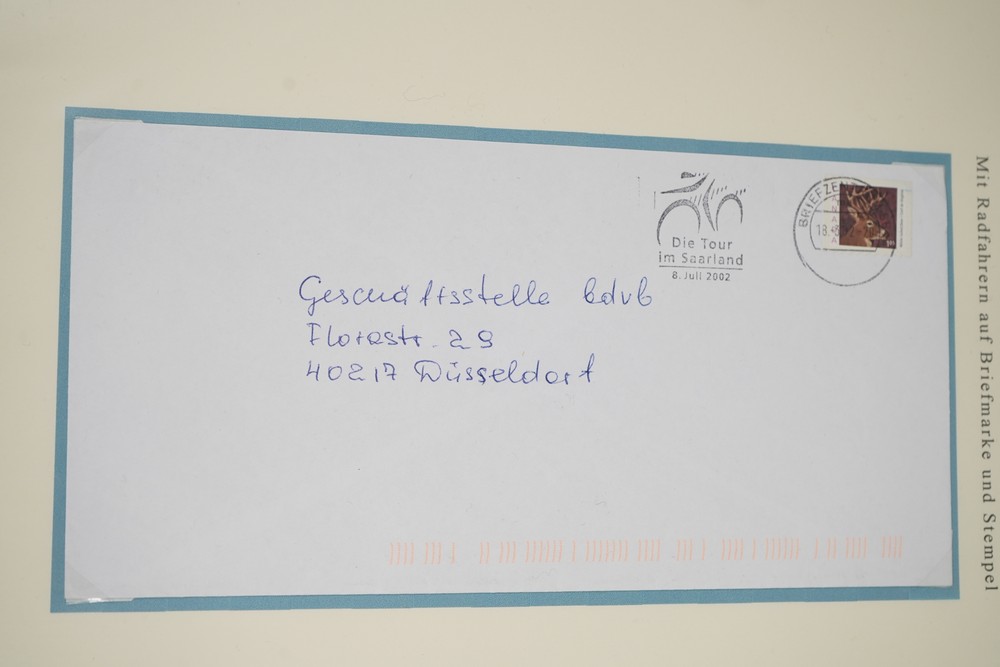 Die Tour
im Saarland
8. Juli 2002
BRIEFZEN
18.
Geschäftsstelle bdvb
Florastr. 29
40217 Düsseldorf
Mit Radfahrern auf Briefmarke und Stempel